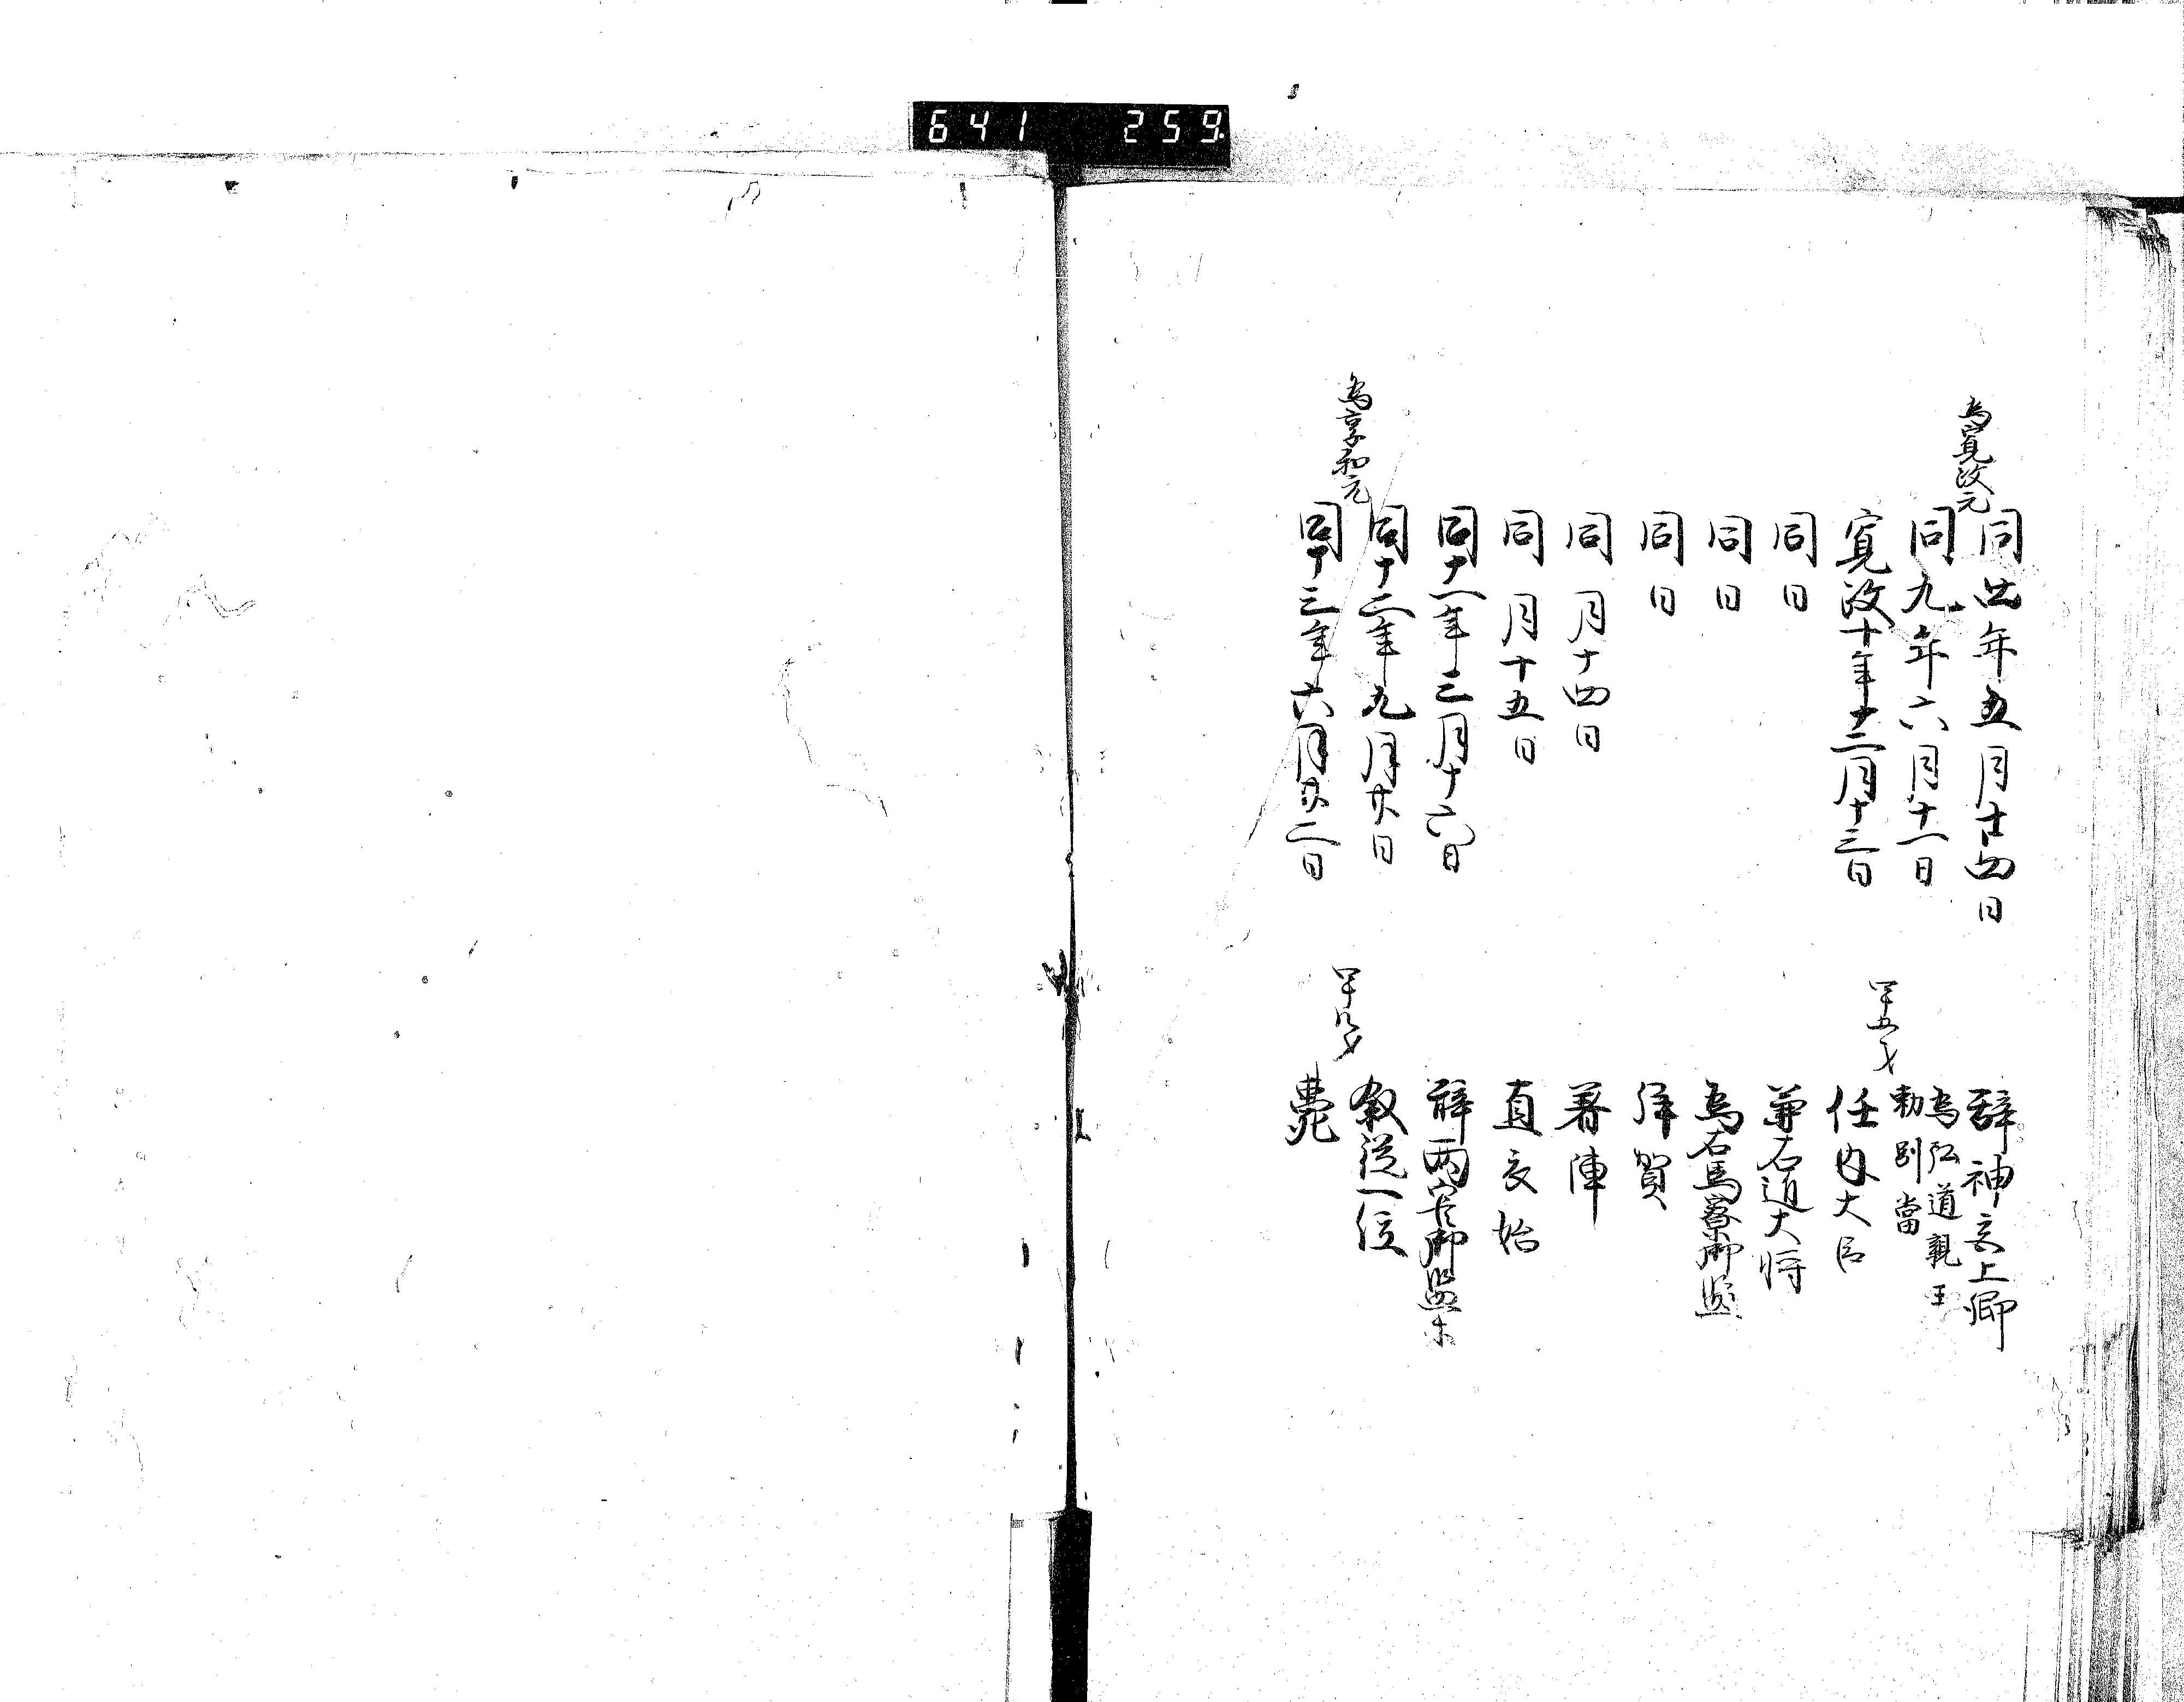 641 259
同七年五月廿四日 辞神宮上卿
為寛政元
同九年六月十一日 為弘道親王
勅別當
寛政十年十二月十三日 任内大臣
四十五才
同日 兼右近大将
同日 為右馬寮御監
同日 拝賀
同月十四日 著陣
同月十五日 直衣始
同十一年三月十六日 辞両官御監等
同十二年九月廿日 叙従一位
為享和元
同十三年六月廿二日 薨
四十八才